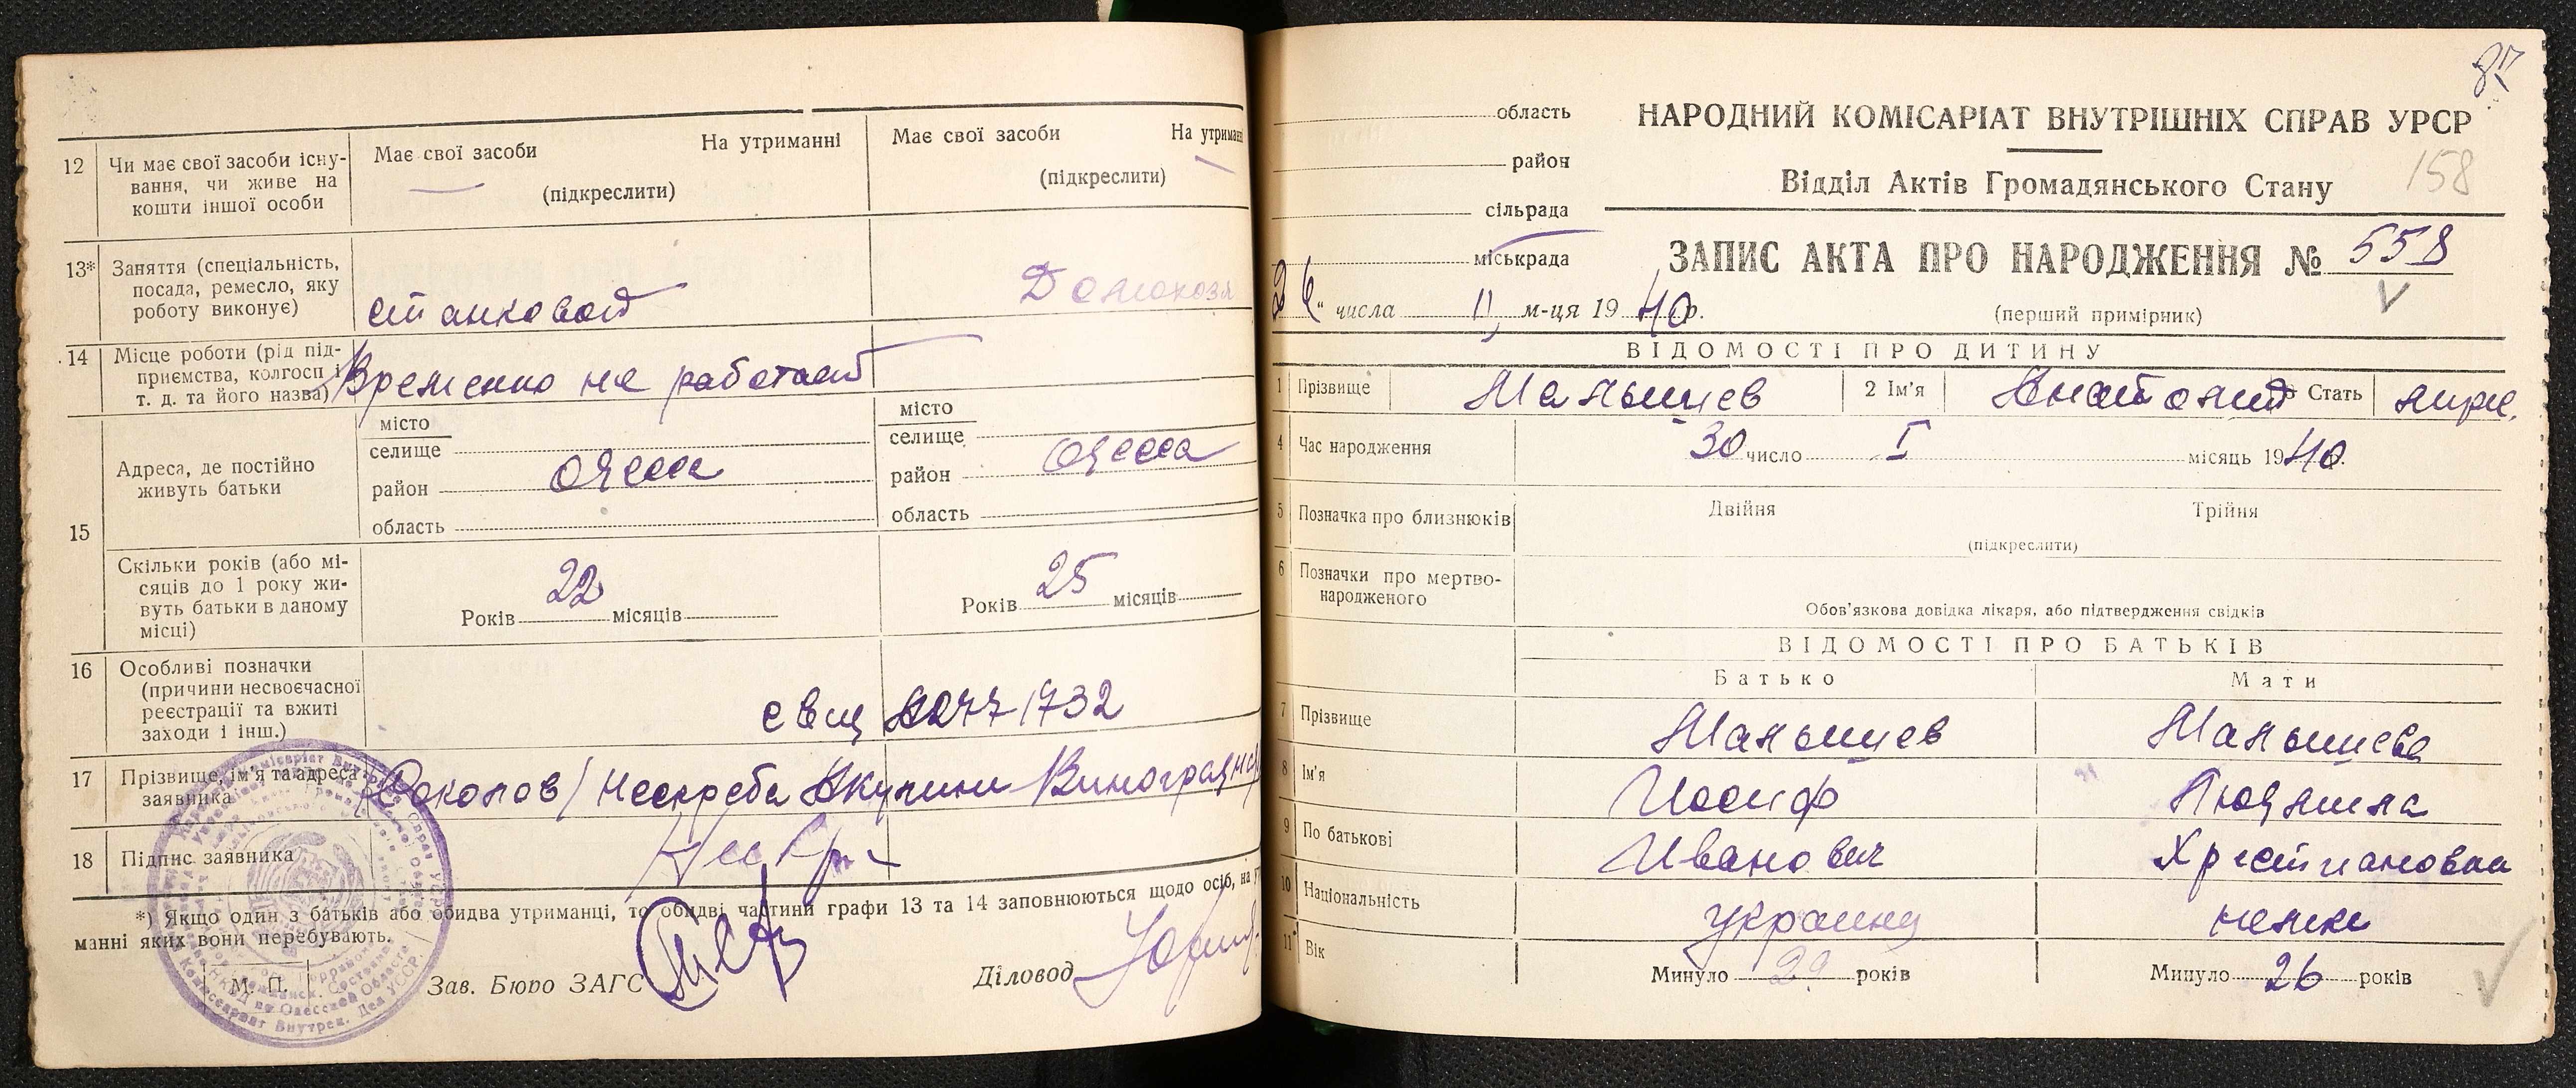 12 Чи має свої засоби існу-
вання, чи живе на
кошти іншої особи
Має свої засоби На утриманні
(підкреслити)
Має свої засоби На утриман
(підкреслити)
13* Заняття (спеціальність,
посада, ремесло, яку
роботу виконує)
становой
Домохозя
14 Місце роботи (рід під-
приємства, колгосп і
т. д. та його назва)
Временно не работает
15 Адреса, де постійно
живуть батьки
місто
селище
район Одесса
область
місто
селище
район Одесса
область
Скільки років (або мі-
сяців до 1 року жи-
вуть батьки в даному
місці)
Років 22 місяців
Років 25 місяців
16 Особливі позначки
(причини несвоєчасної
реєстрації та вжиті
заходи і інш.)
1732
17 Прізвище, ім'я та адреса
заявника
Соколов
18 Підпис заявника
*) Якщо один з батьків або обидва утриманці, то обидві частини графи 13 та 14 заповнюються щодо осіб, на ут
манні яких вони перебувають.
М. П. Зав. Бюро ЗАГС Діловод
87
область
район
сільрада
міськрада
НАРОДНИЙ КОМІСАРІАТ ВНУТРІШНІХ СПРАВ УРСР
Відділ Актів Громадянського Стану
158
ЗАПИС АКТА ПРО НАРОДЖЕННЯ № 558
(перший примірник)
26 „ числа II м-ця 1940 р.
ВІДОМОСТІ ПРО ДИТИНУ
1 Прізвище Малышев 2 Ім'я Анатолий 3 Стать муж.
4 Час народження 30 число I місяць 1940 р.
5 Позначка про близнюків Двійня Трійня
(підкреслити)
6 Позначки про мертво-
народженого
Обов'язкова довідка лікаря, або підтвердження свідків
ВІДОМОСТІ ПРО БАТЬКІВ
Батько Мати
7 Прізвище Малышев Малышева
8 Ім'я Иосиф Людмила
9 По батькові Иванович Христиановна
10 Національність украинец немка
11* Вік Минуло 29 років Минуло 26 років